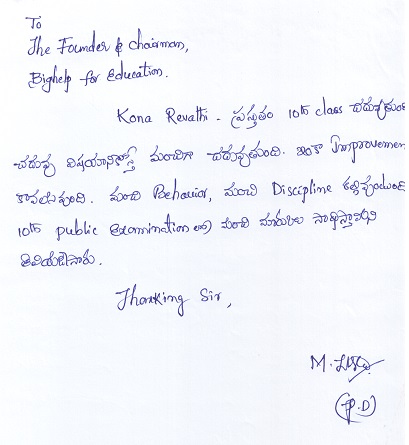 To
The Founder & chairman,
Bighelp for Education.
Kona Revathi - ప్రస్తుతం 10th class చదువుతుంది
చదువు విషయానికొస్తే మంచిగా చదువుతుంది. ఇంకా Improvement
కావలసివుంది. మంచి Behavior, మంచి Discipline కల్గివుంటుంది
10th public Examination లో మంచి మార్కులు సాధిస్తానని
తెలియజేసారు.
Thanking Sir,
M.
(P.D)